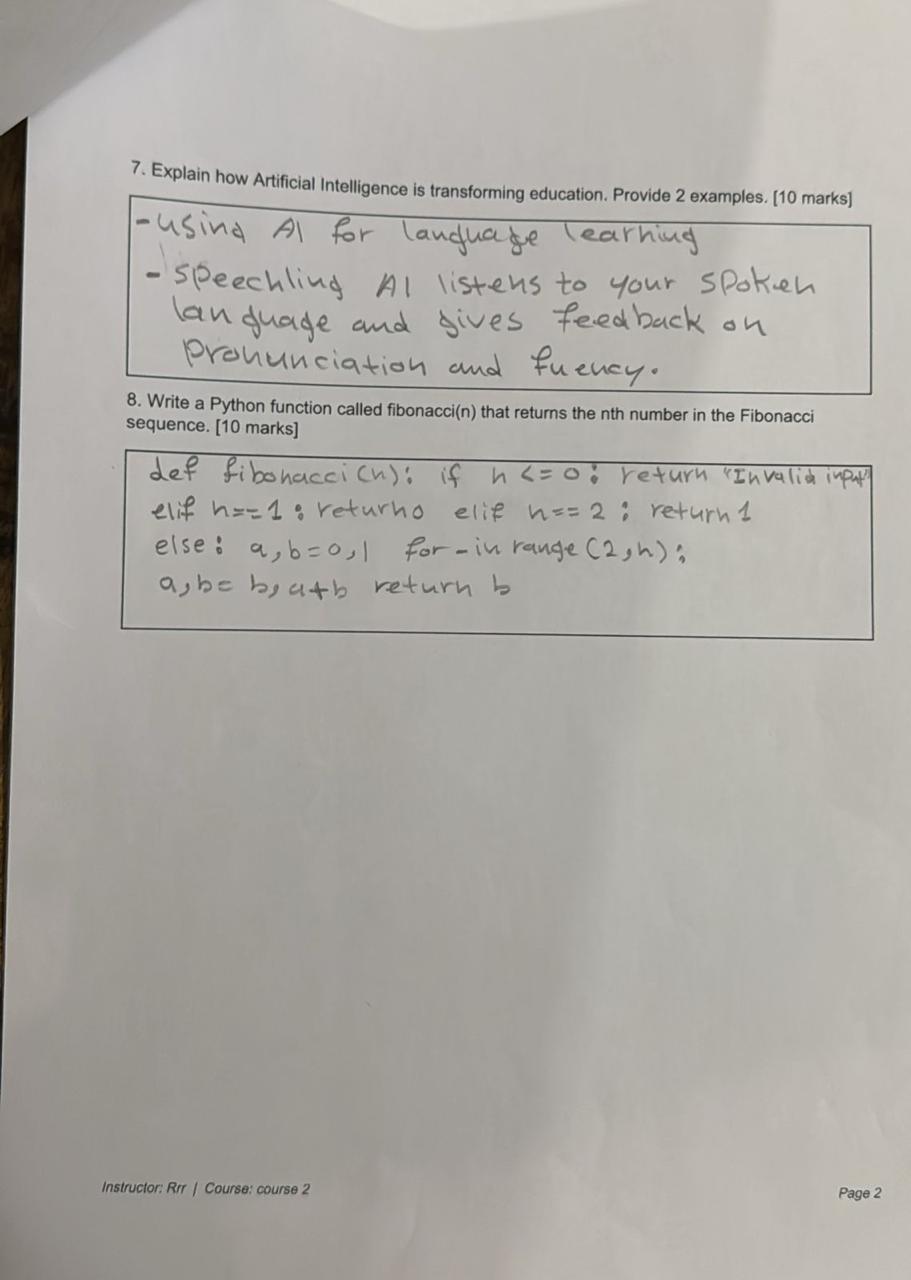 7. Explain how Artificial Intelligence is transforming education. Provide 2 examples. [10 marks]
- using AI for language learning
- speechling AI listens to your spoken
language and gives feedback on
pronunciation and fuency.
8. Write a Python function called fibonacci(n) that returns the nth number in the Fibonacci
sequence. [10 marks]
def fibonacci(n): if n <= 0: return "Invalid input"
elif n==1: return 0 elif n==2: return 1
else: a,b=0,1 for _ in range(2,n):
a,b= b,a+b return b
Instructor: Rrr | Course: course 2
Page 2